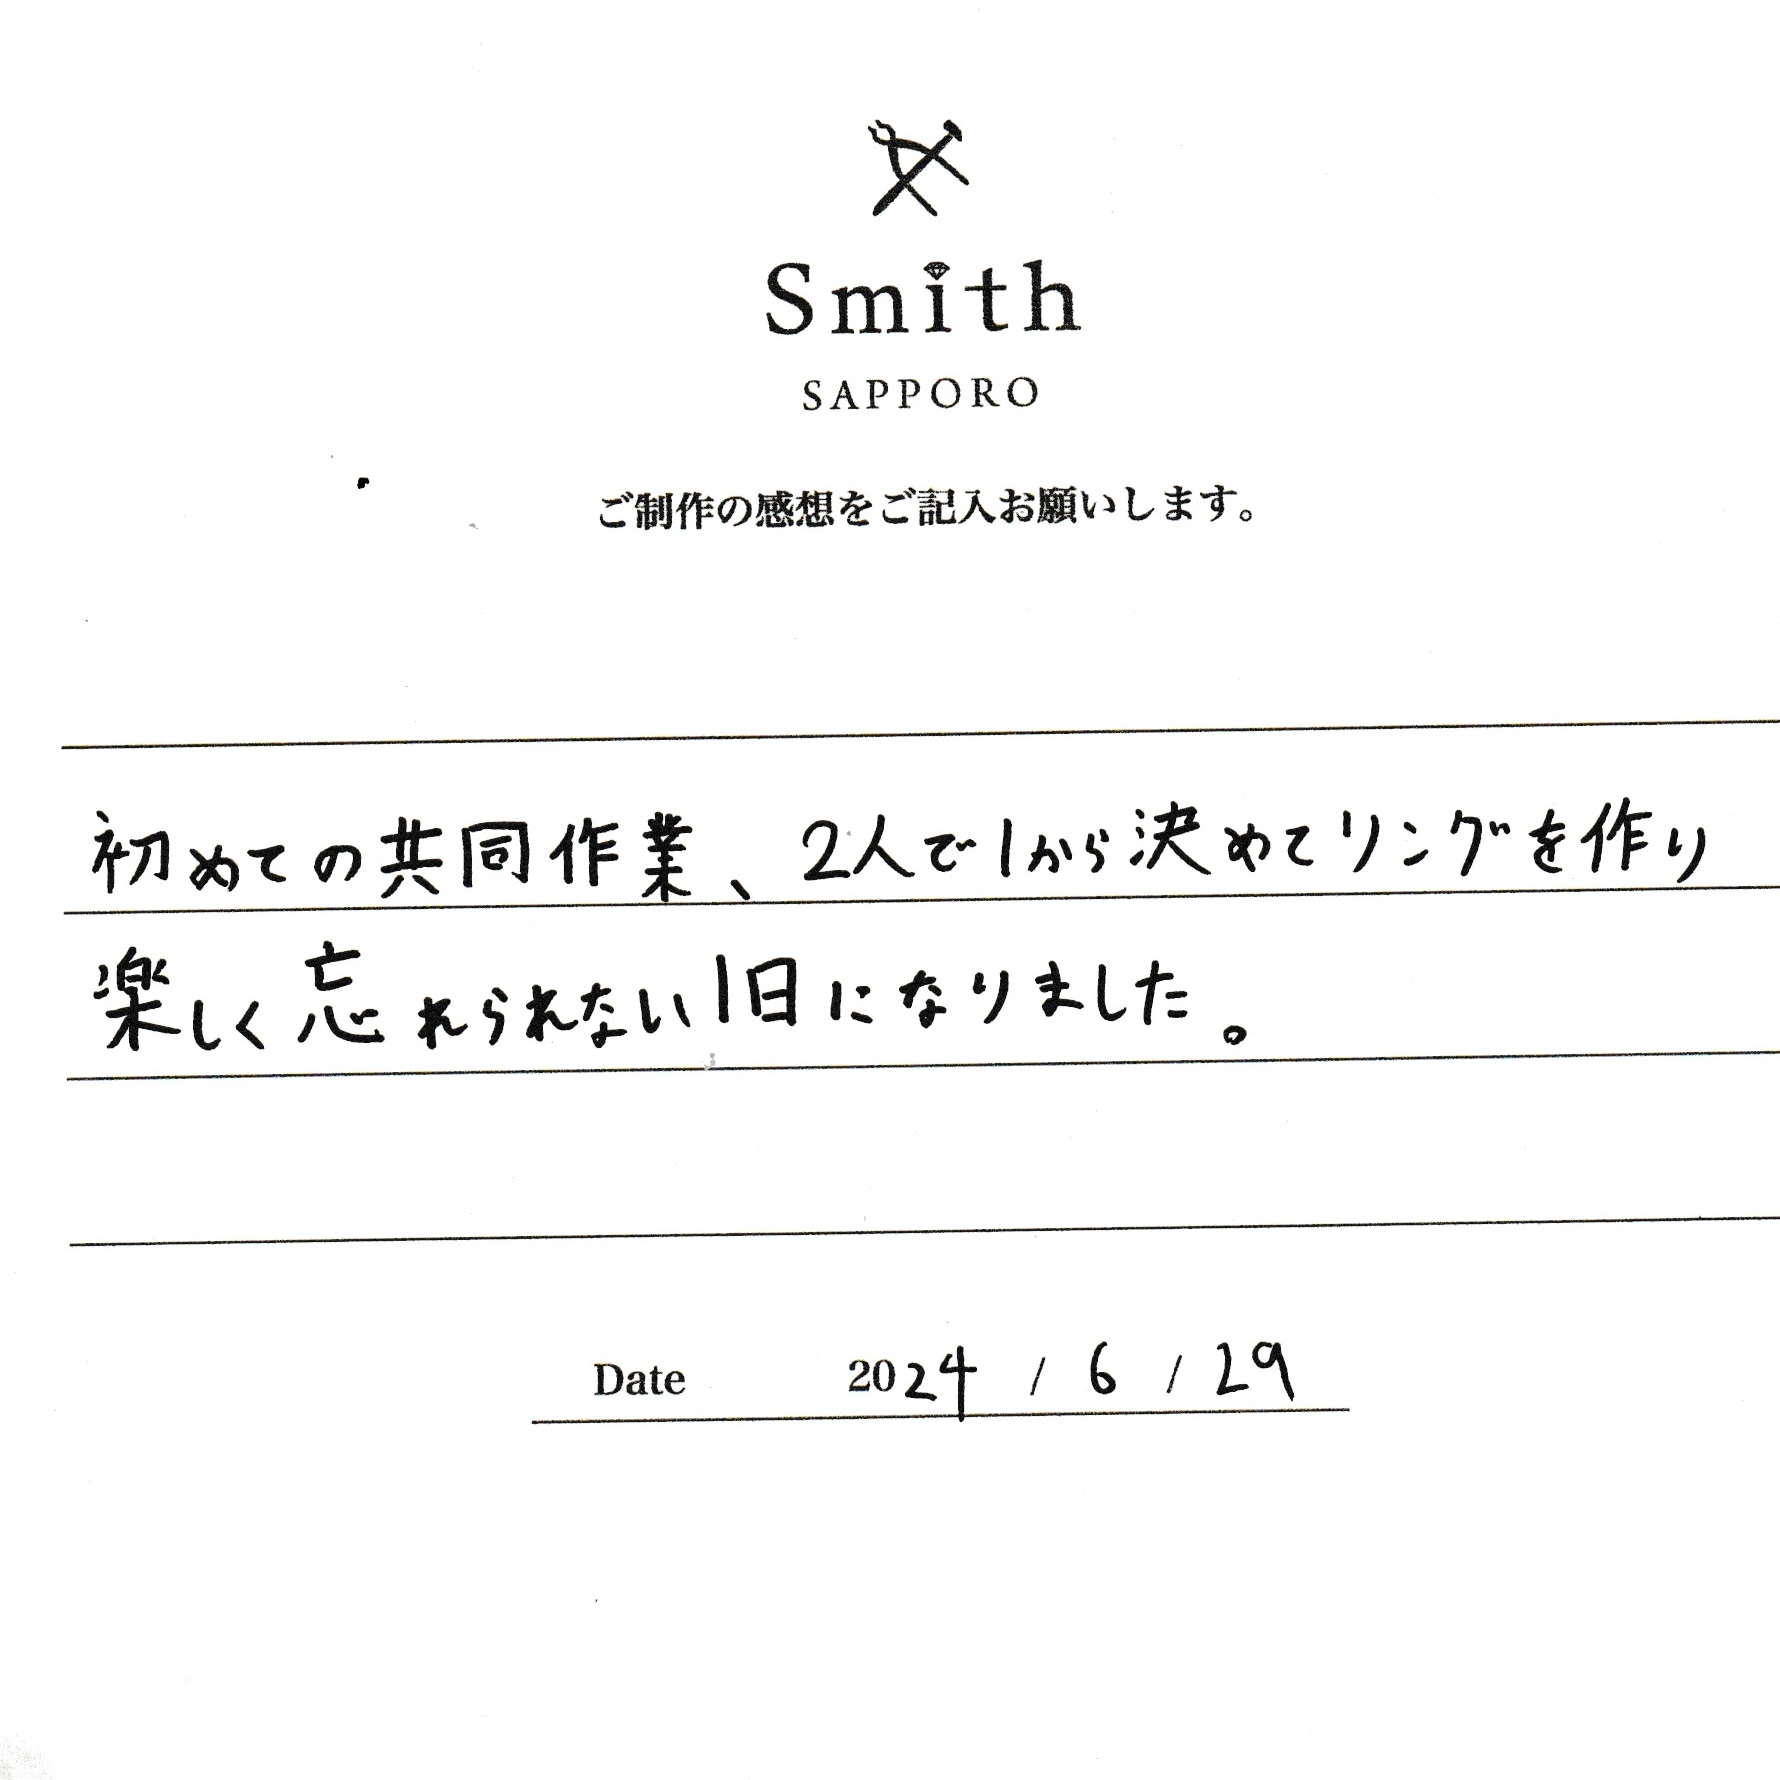 Smith
SAPPORO
ご制作の感想をご記入お願いします。
初めての共同作業、2人で1から決めてリングを作り
楽しく忘れられない1日になりました。
Date 2024 / 6 / 29